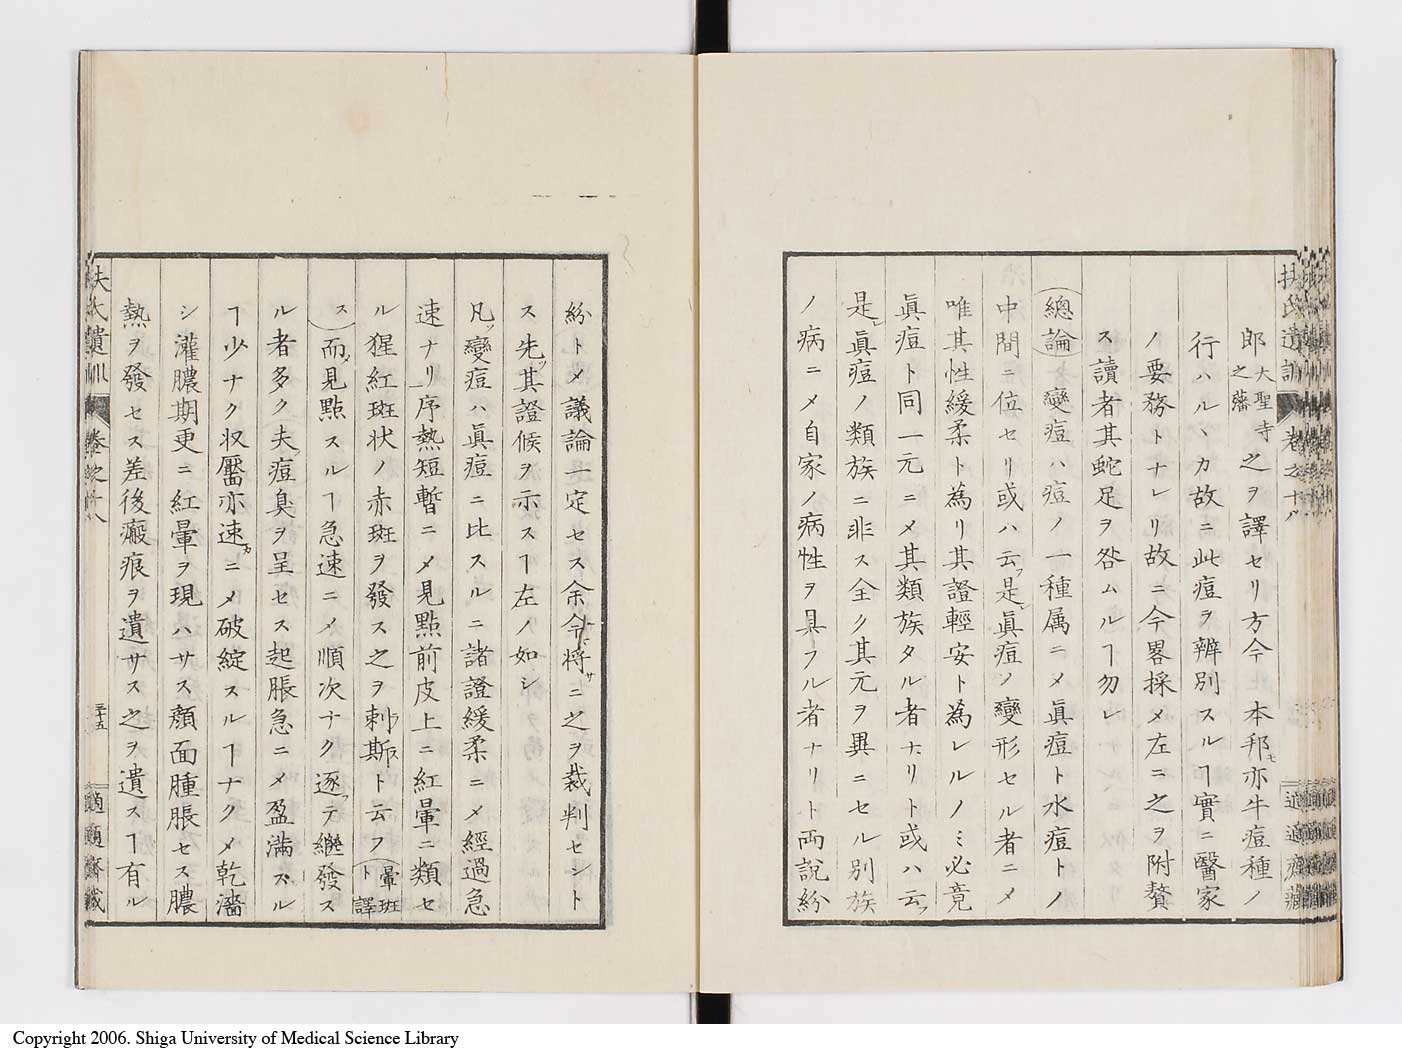 扶氏遺訓 卷之十八
郎大聖寺之藩之ヲ譯セリ方今本邦モ亦牛痘種ノ
行ハルヽカ故ニ此痘ヲ辨別スルヿ實ニ醫家
ノ要務トナレリ故ニ今畧採メ左ニ之ヲ附贅
ス讀者其蛇足ヲ咎ムルヿ勿レ
總論 變痘ハ痘ノ一種属ニメ眞痘ト水痘トノ
中間ニ位セリ或ハ云フ是レ眞痘ノ變形セル者ニメ
唯其性緩柔ト為リ其證輕安ト為レルノミ必竟
眞痘ト同一元ニメ其類族タル者ナリト或ハ云フ
是レ眞痘ノ類族ニ非ス全ク其元ヲ異ニセル別族
ノ病ニメ自家ノ病性ヲ具フル者ナリト両説紛
紛トメ議論一定セス余今将サニ之ヲ裁判セント
ス先ツ其證候ヲ示スヿ左ノ如シ
凡ソ變痘ハ眞痘ニ比スルニ諸證緩柔ニメ經過急
速ナリ序熱短暫ニメ見點前皮上ニ紅暈ニ類セ
ル猩紅斑状ノ赤斑ヲ發ス之ヲ刺斯ト云フ暈斑ト譯
ス而メ見點スルヿ急速ニメ順次ナク逐テ繼發ス
ル者多ク夫ノ痘臭ヲ呈セス起脹急ニメ盈満スル
ヿ少ナク収靨亦速カニメ破綻スルヿナクメ乾濇
シ灌膿期更ニ紅暈ヲ現ハサス顔面腫脹セス膿
熱ヲ發セス差後瘢痕ヲ遺サス之ヲ遺スヿ有ル
扶氏遺訓 卷之十八 三十五 適適齋藏
Copyright 2006. Shiga University of Medical Science Library